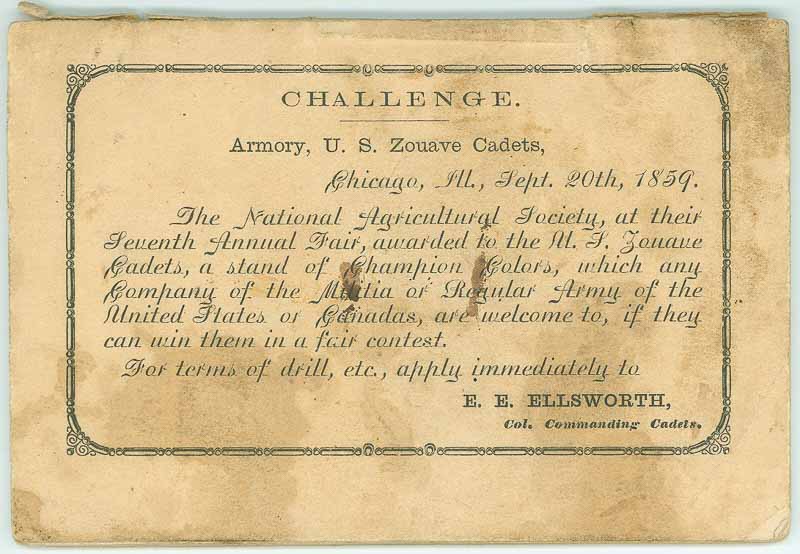 CHALLENGE.
Armory, U. S. Zouave Cadets,
Chicago, Ill., Sept. 20th, 1859.
The National Agricultural Society, at their
Seventh Annual Fair, awarded to the U. S. Zouave
Cadets, a stand of Champion Colors, which any
Company of the Militia or Regular Army of the
United States or Canadas, are welcome to, if they
can win them in a fair contest.
For terms of drill, etc., apply immediately to
E. E. ELLSWORTH,
Col. Commanding Cadets.